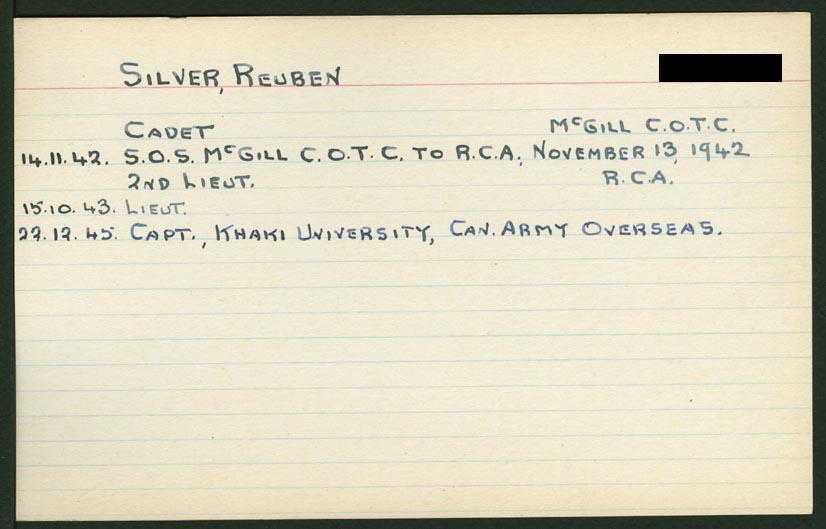 SILVER, REUBEN
CADET McGILL C.O.T.C.
14.11.42. S.O.S. McGILL C.O.T.C. TO R.C.A., NOVEMBER 13, 1942
2ND LIEUT. R.C.A.
15.10.43. LIEUT.
22.12.45. CAPT., KHAKI UNIVERSITY, CAN. ARMY OVERSEAS.